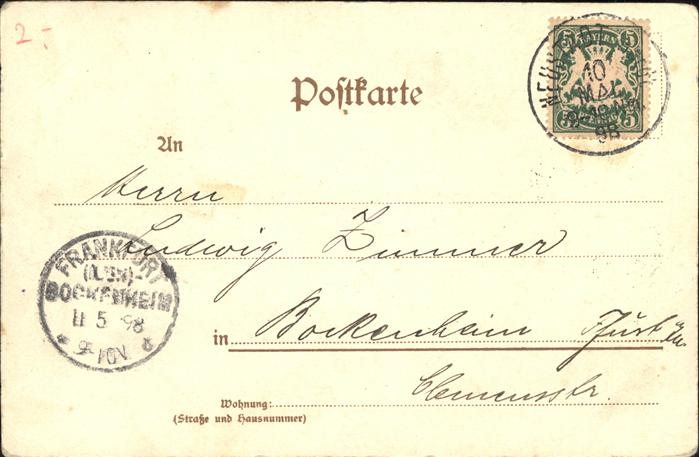 2.-
BAYERN
5 5
5 5
10
MAI
98
Postkarte
An
Herrn
Ludwig Zimmer
FRANKFURT
BOCKENHEIM
11 5 98
9-10V
in Bockenheim
Clemensstr.
Wohnung:
(Straße und Hausnummer)